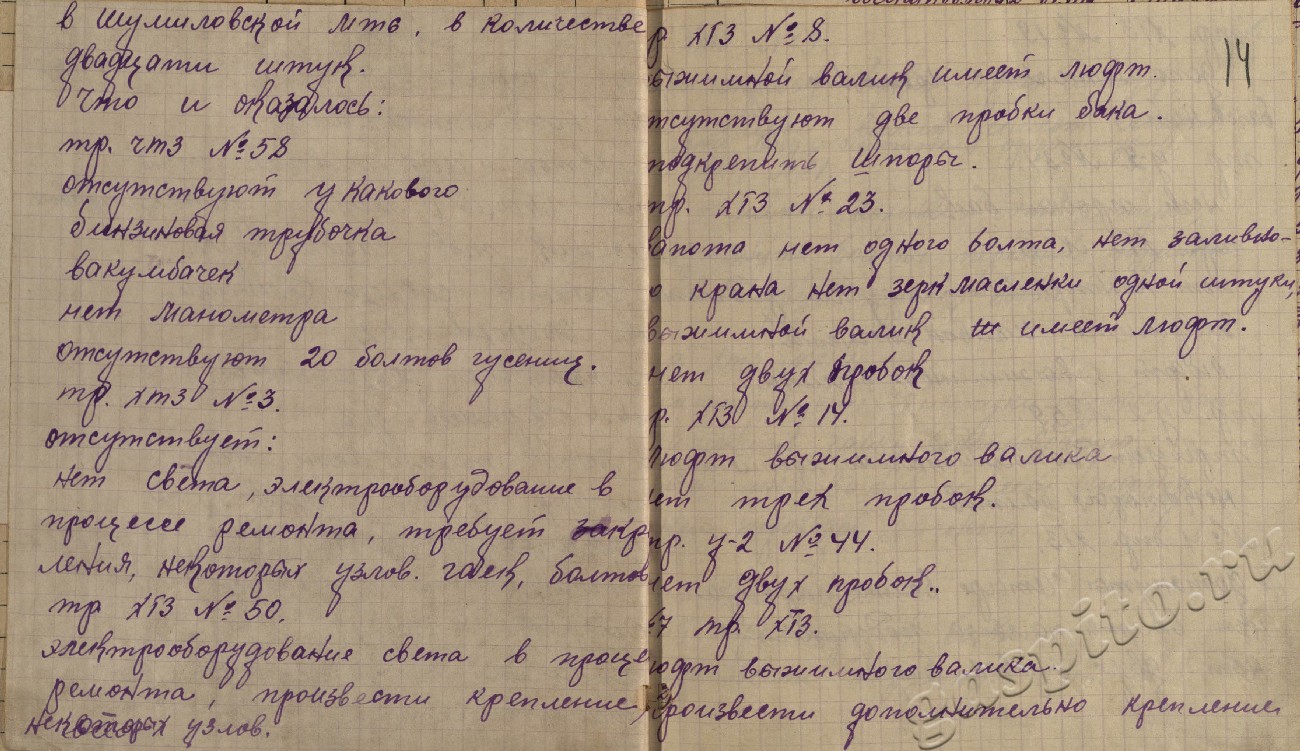 в Шумиловской мтс, в количестве
двадцати штук.
Что и оказалось:
тр. чтз №58
отсутствуют у какового
бинзиновая трубочка
вакумбачек
нет манометра
отсутствуют 20 болтов гусениц.
тр. хтз №3.
отсутствует:
нет света, электрооборудование в
процессе ремонта, требует закр
ления, некоторых узлов. гаек, болтов
тр хтз №50.
электрооборудование света в проце
ремонта, произвести крепление,
некоторых узлов.
14
р хтз №8.
ыжимной валик имеет люфт.
тсутствуют две пробки бака.
подкрепить шпоры.
тр. хтз №23.
апота нет одного болта, нет заливно-
о крана нет зерк масленки одной штуки,
выжимной валик имеет люфт.
нет двух пробок
р. хтз №14.
люфт выжимного валика
ет трех пробок.
тр. у-2 №44.
нет двух пробок..
7 тр. хтз.
юфт выжимного валика.
произвести дополнительно крепление
gaspito.ru